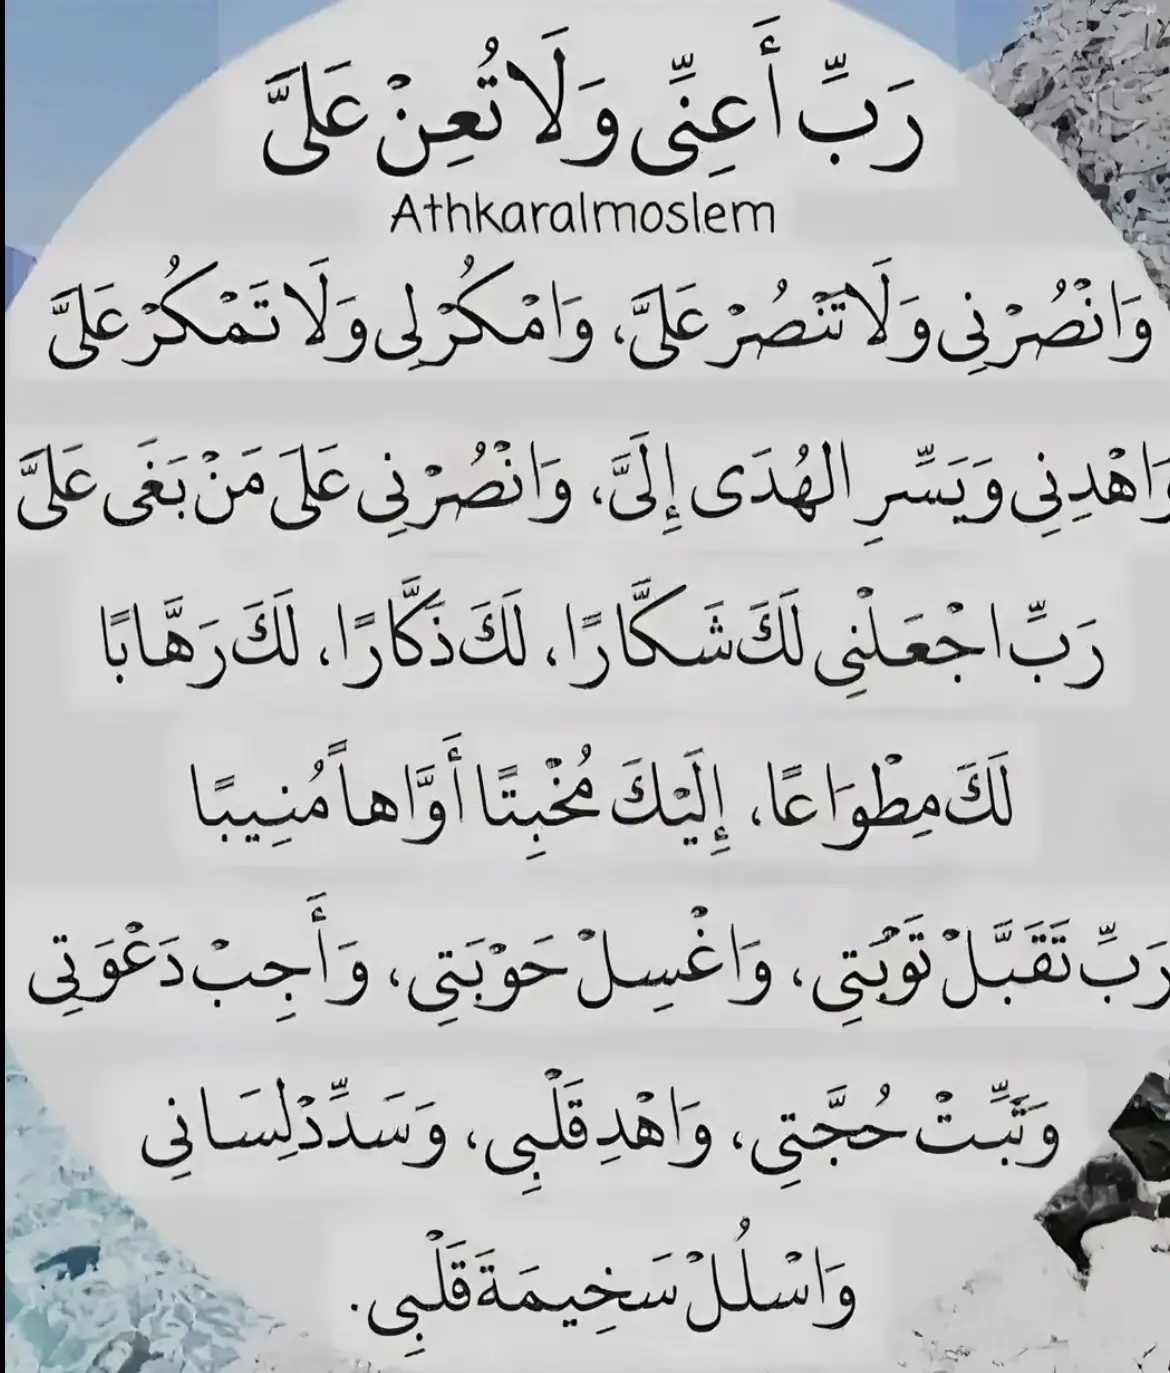 رَبِّ أَعِنِّى وَلَا تُعِنْ عَلَىَّ
Athkaralmoslem
وَانْصُرْنِي وَلَا تَنْصُرْ عَلَىَّ، وَامْكُرْ لِى وَلَا تَمْكُرْ عَلَىَّ
وَاهْدِنِي وَيَسِّرِ الهُدَى إِلَىَّ، وَانْصُرْنِي عَلَى مَنْ بَغَى عَلَىَّ
رَبِّ اجْعَلْنِي لَكَ شَكَّارًا، لَكَ ذَكَّارًا، لَكَ رَهَّابًا
لَكَ مِطْوَاعًا، إِلَيْكَ مُخْبِتًا أَوَّاهاً مُنِيبًا
رَبِّ تَقَبَّلْ تَوْبَتِي، وَاغْسِلْ حَوْبَتِي، وَأَجِبْ دَعْوَتِي
وَثَبِّتْ حُجَّتِي، وَاهْدِ قَلْبِي، وَسَدِّدْ لِسَانِي
وَاسْلُلْ سَخِيمَةَ قَلْبِي.